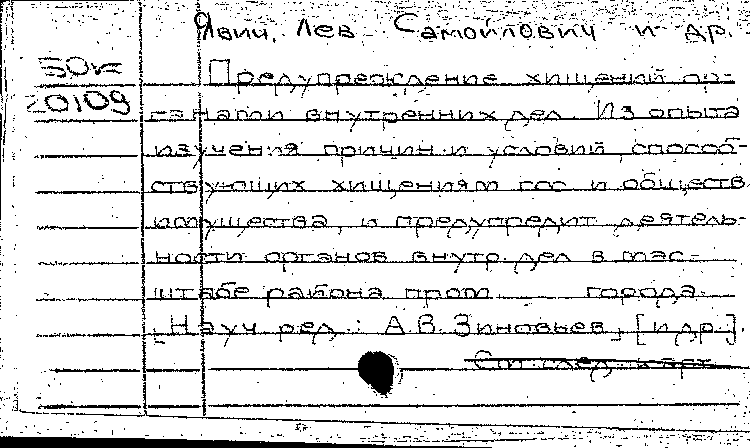 Явич, Лев Самойлович и др.
50к
20109
Предупреждение хищений ор-
ганами внутренних дел. Из опыта
изучения причин и условий, способ-
ствующих хищениям гос и обществ
имущества, и предупредит деятель-
ности органов внутр. дел в мас-
штабе района пром. города.
[Науч ред.: А.В. Зиновьев, [и др].
См. след. карт.